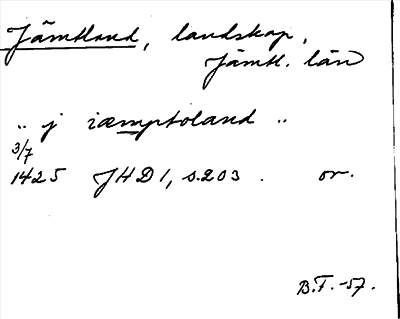 Jämtland, landskap,
Jämtl. län
„ j iæmptoland „
3/7
1425 JHD 1, s. 203. or.
B.F. -57.